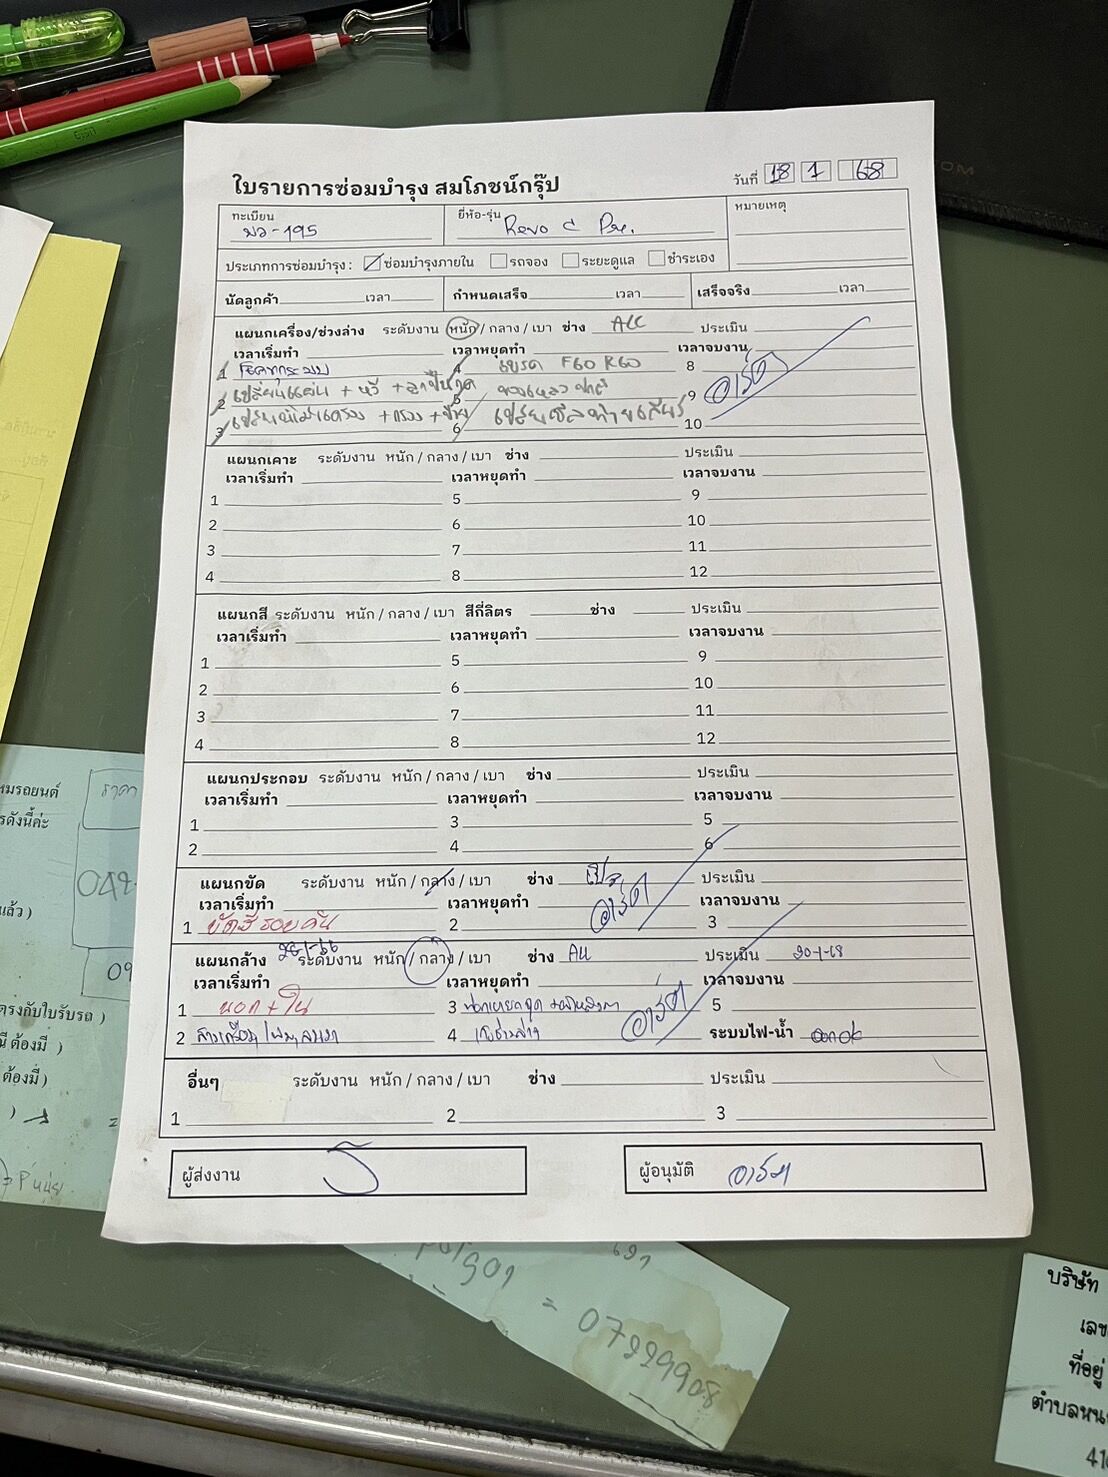 ใบรายการซ่อมบำรุง สมโภชน์กรุ๊ป
วันที่ 18 1 68
ทะเบียน ผว-195
ยี่ห้อ-รุ่น Revo C Pre.
หมายเหตุ
ประเภทการซ่อมบำรุง : ซ่อมบำรุงภายใน รถจอง ระยะดูแล ชำระเอง
นัดลูกค้า เวลา กำหนดเสร็จ เวลา เสร็จจริง เวลา
แผนกเครื่อง/ช่วงล่าง ระดับงาน หนัก / กลาง / เบา ช่าง ALL ประเมิน
เวลาเริ่มทำ เวลาหยุดทำ เวลาจบงาน
1 4 เบรค F60 R60 8
2 เปลี่ยนแผ่น + หวี + ลูกปืน 5 9
3 + กรอง + 6 เปลี่ยนซีลท้ายเกียร์ 10
อาร์ต
แผนกเคาะ ระดับงาน หนัก / กลาง / เบา ช่าง ประเมิน
เวลาเริ่มทำ เวลาหยุดทำ เวลาจบงาน
1 5 9
2 6 10
3 7 11
4 8 12
แผนกสี ระดับงาน หนัก / กลาง / เบา สีกี่ลิตร ช่าง ประเมิน
เวลาเริ่มทำ เวลาหยุดทำ เวลาจบงาน
1 5 9
2 6 10
3 7 11
4 8 12
แผนกประกอบ ระดับงาน หนัก / กลาง / เบา ช่าง ประเมิน
เวลาเริ่มทำ เวลาหยุดทำ เวลาจบงาน
1 3 5
2 4 6
แผนกขัด ระดับงาน หนัก / กลาง / เบา ช่าง ประเมิน
เวลาเริ่มทำ เวลาหยุดทำ เวลาจบงาน
1 ขัดสีรอบคัน 2 3
อาร์ต
แผนกล้าง ระดับงาน หนัก / กลาง / เบา ช่าง ALL ประเมิน 20-1-68
เวลาเริ่มทำ เวลาหยุดทำ เวลาจบงาน
1 นอก + ใน 3 5
2 4 ระบบไฟ-น้ำ
อาร์ต
อื่นๆ ระดับงาน หนัก / กลาง / เบา ช่าง ประเมิน
1 2 3
ผู้ส่งงาน
ผู้อนุมัติ อาร์ต
ราคา
รดังนี้ค่ะ
ตรงกับใบรับรถ )
ต้องมี )
= 07299908
บริษัท
เลข
ที่อยู่
ตำบลหน